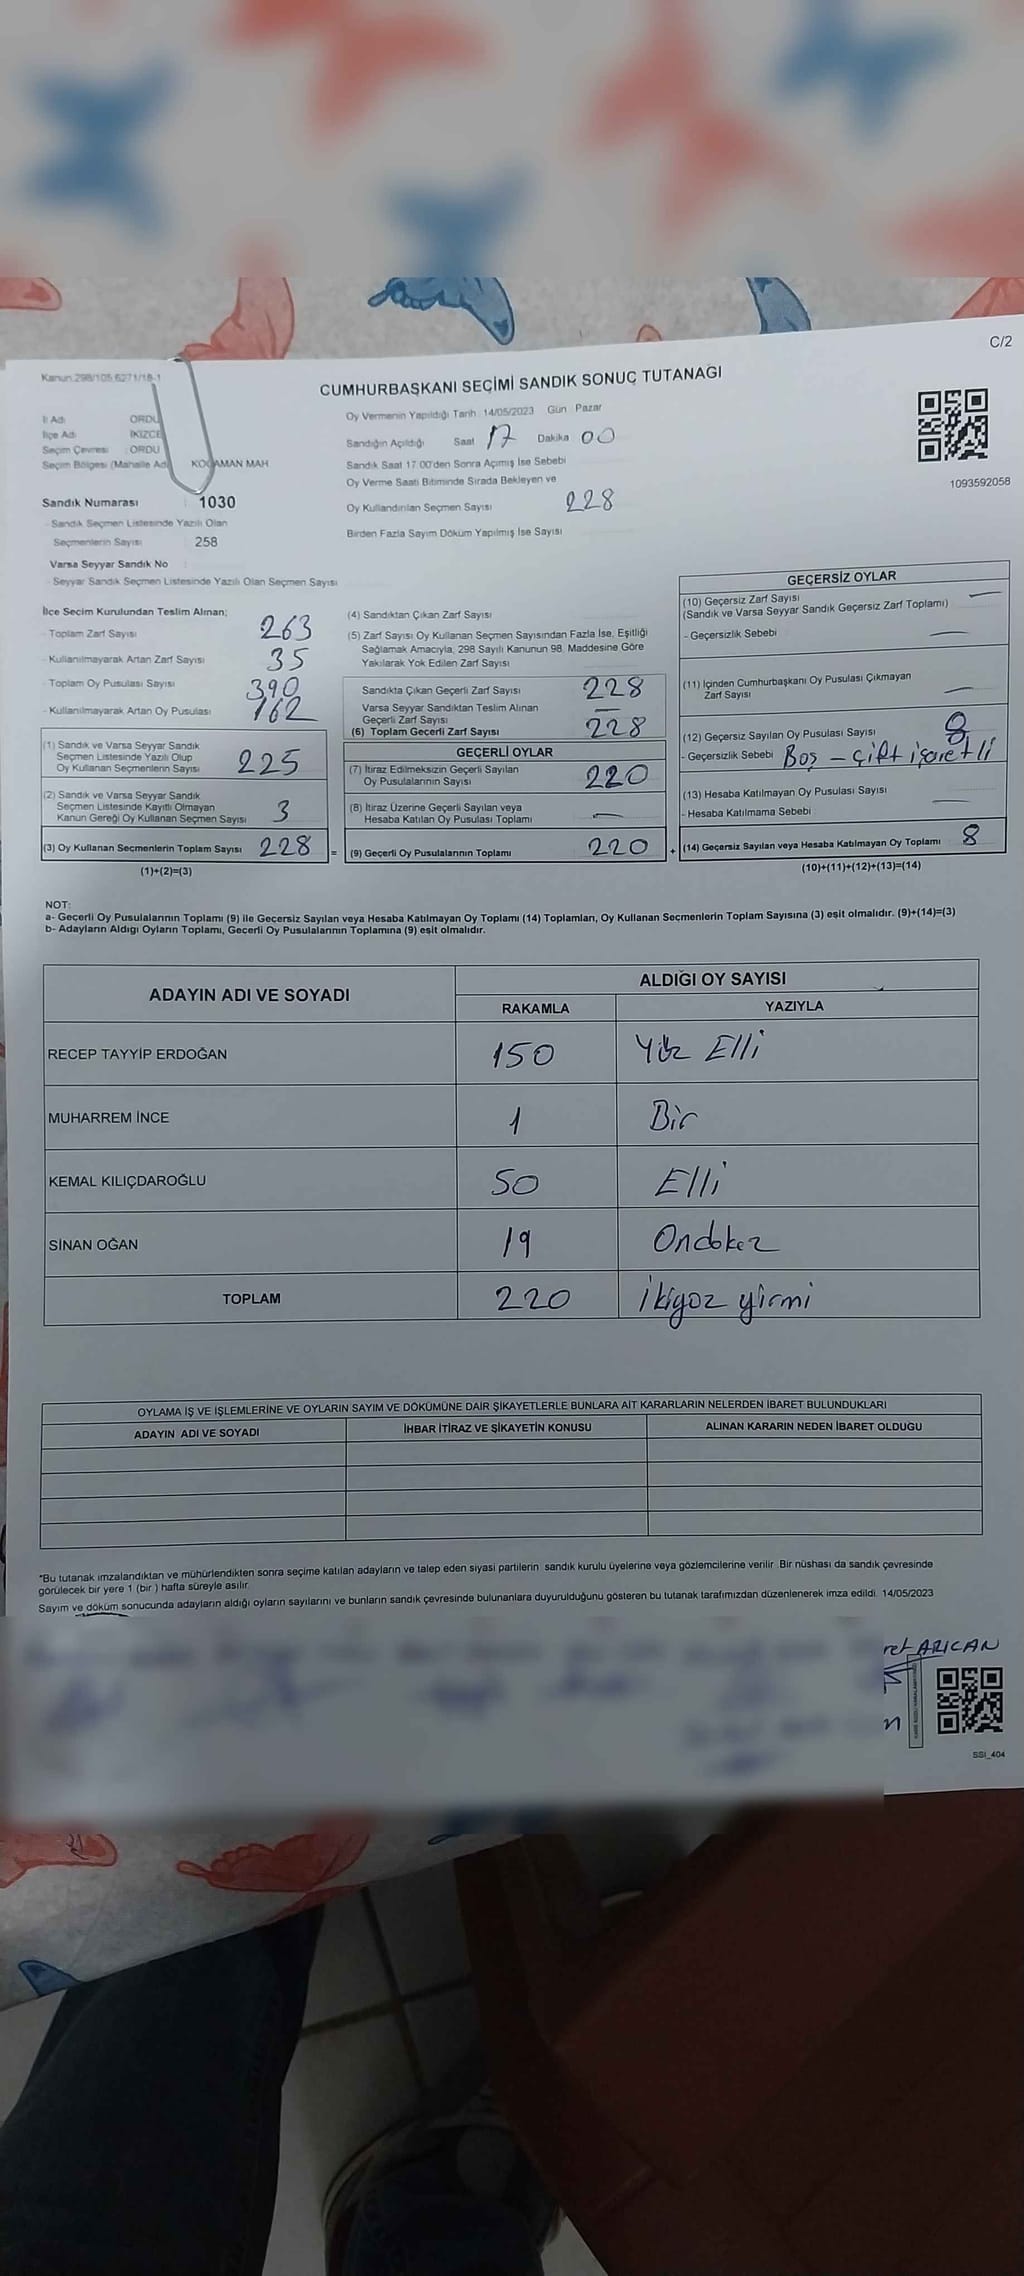 C/2
Kanun:298/105,6271/18-1
CUMHURBAŞKANI SEÇİMİ SANDIK SONUÇ TUTANAĞI
İl Adı ORDU
İlçe Adı İKİZCE
Seçim Çevresi : ORDU
Seçim Bölgesi (Mahalle Adı KOCAMAN MAH
Sandık Numarası : 1030
- Sandık Seçmen Listesinde Yazılı Olan
Seçmenlerin Sayısı : 258
Varsa Seyyar Sandık No :
- Seyyar Sandık Seçmen Listesinde Yazılı Olan Seçmen Sayısı
Oy Vermenin Yapıldığı Tarih : 14/05/2023 Gün : Pazar
Sandığın Açıldığı Saat 17 Dakika 00
Sandık Saat 17.00'den Sonra Açımış İse Sebebi
Oy Verme Saati Bitiminde Sırada Bekleyen ve
Oy Kullandırılan Seçmen Sayısı 228
Birden Fazla Sayım Döküm Yapılmış İse Sayısı
1093592058
İlce Secim Kurulundan Teslim Alınan;
- Toplam Zarf Sayısı 263
- Kullanılmayarak Artan Zarf Sayısı 35
- Toplam Oy Pusulası Sayısı 390
- Kullanılmayarak Artan Oy Pusulası 162
(1) Sandık ve Varsa Seyyar Sandık
Seçmen Listesinde Yazılı Olup
Oy Kullanan Seçmenlerin Sayısı 225
(2) Sandık ve Varsa Seyyar Sandık
Seçmen Listesinde Kayıtlı Olmayan
Kanun Gereği Oy Kullanan Seçmen Sayısı 3
(3) Oy Kullanan Seçmenlerin Toplam Sayısı 228 =
(1)+(2)=(3)
(4) Sandıktan Çıkan Zarf Sayısı
(5) Zarf Sayısı Oy Kullanan Seçmen Sayısından Fazla İse, Eşitliği
Sağlamak Amacıyla, 298 Sayılı Kanunun 98. Maddesine Göre
Yakılarak Yok Edilen Zarf Sayısı
Sandıkta Çıkan Geçerli Zarf Sayısı 228
Varsa Seyyar Sandıktan Teslim Alınan
Geçerli Zarf Sayısı —
(6) Toplam Gecerli Zarf Sayısı 228
GEÇERLİ OYLAR
(7) İtiraz Edilmeksizin Geçerli Sayılan
Oy Pusulalarının Sayısı 220
(8) İtiraz Üzerine Geçerli Sayılan veya
Hesaba Katılan Oy Pusulası Toplamı —
(9) Geçerli Oy Pusulalarının Toplamı 220 +
GEÇERSİZ OYLAR
(10) Geçersiz Zarf Sayısı —
(Sandık ve Varsa Seyyar Sandık Geçersiz Zarf Toplamı)
- Geçersizlik Sebebi —
(11) İçinden Cumhurbaşkanı Oy Pusulası Çıkmayan
Zarf Sayısı —
(12) Geçersiz Sayılan Oy Pusulası Sayısı 8
- Geçersizlik Sebebi Boş - çift işaretli
(13) Hesaba Katılmayan Oy Pusulası Sayısı —
- Hesaba Katılmama Sebebi
(14) Geçersiz Sayılan veya Hesaba Katılmayan Oy Toplamı 8
(10)+(11)+(12)+(13)=(14)
NOT:
a- Geçerli Oy Pusulalarının Toplamı (9) ile Geçersiz Sayılan veya Hesaba Katılmayan Oy Toplamı (14) Toplamları, Oy Kullanan Seçmenlerin Toplam Sayısına (3) eşit olmalıdır. (9)+(14)=(3)
b- Adayların Aldığı Oyların Toplamı, Gecerli Oy Pusulalarının Toplamına (9) eşit olmalıdır.
ADAYIN ADI VE SOYADI ALDIĞI OY SAYISI
RAKAMLA YAZIYLA
RECEP TAYYİP ERDOĞAN 150 Yüz Elli
MUHARREM İNCE 1 Bir
KEMAL KILIÇDAROĞLU 50 Elli
SİNAN OĞAN 19 Ondokez
TOPLAM 220 İkiyoz yirmi
OYLAMA İŞ VE İŞLEMLERİNE VE OYLARIN SAYIM VE DÖKÜMÜNE DAİR ŞİKAYETLERLE BUNLARA AİT KARARLARIN NELERDEN İBARET BULUNDUKLARI
ADAYIN ADI VE SOYADI İHBAR İTİRAZ VE ŞİKAYETİN KONUSU ALINAN KARARIN NEDEN İBARET OLDUĞU
*Bu tutanak imzalandıktan ve mühürlendikten sonra seçime katılan adayların ve talep eden siyasi partilerin sandık kurulu üyelerine veya gözlemcilerine verilir. Bir nüshası da sandık çevresinde
görülecek bir yere 1 (bir ) hafta süreyle asılır.
Sayım ve döküm sonucunda adayların aldığı oyların sayılarını ve bunların sandık çevresinde bulunanlara duyurulduğunu gösteren bu tutanak tarafımızdan düzenlenerek imza edildi. 14/05/2023
ret ARICAN
SSI_404